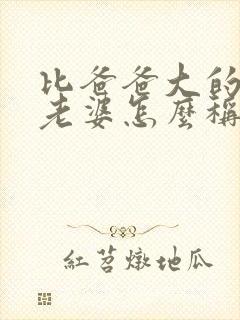 比爸爸大的
老婆怎麼稱
紅苕燉地瓜